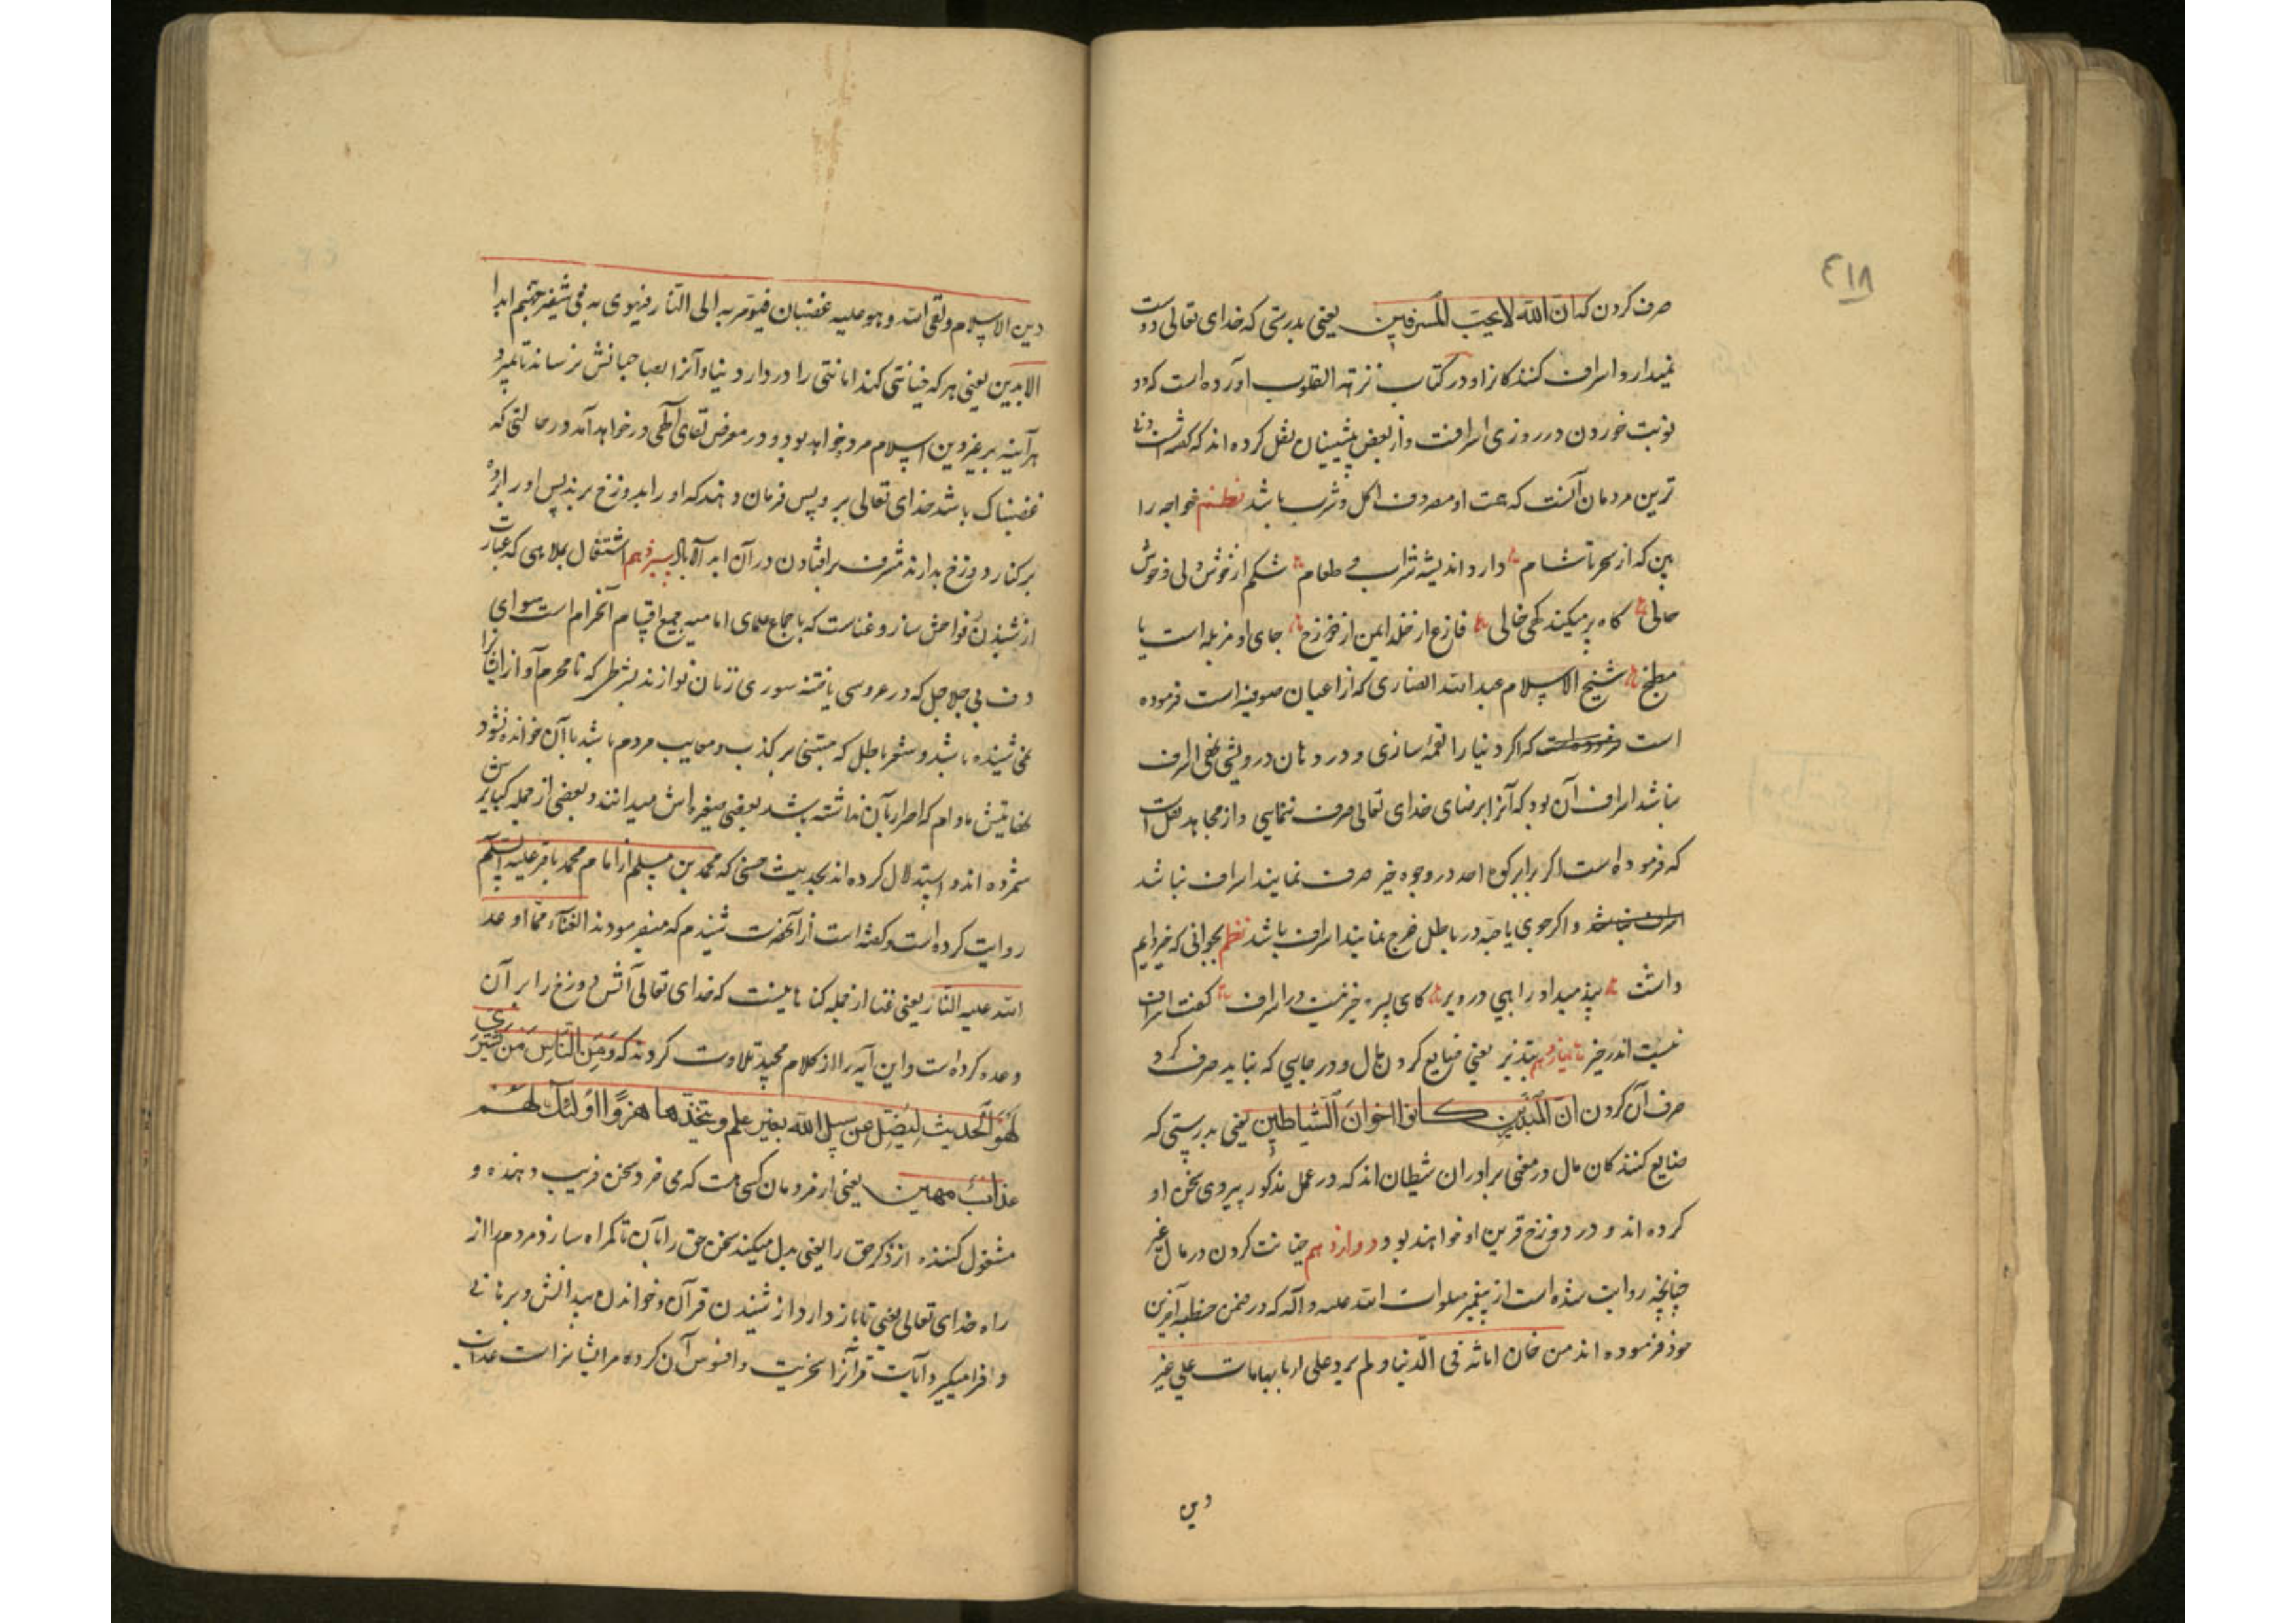 ٤١٨
صرف کردن که ان الله لا یحب المسرفین یعنی بدرستی که خدای تعالی دوست
نمیدارد اسراف کنندکانرا و در کتاب نزهة القلوب آورده است که دو
نوبت خوردن در روزی اسرافست و از بعض پیشینیان نقل کرده اند که کفته است
ترین مردمان آنست که همت او مصروف اکل و شرب باشد نظم خواجه را
بین که از سحر تا شام دارد اندیشه شراب و طعام شکم از خوش دلی و خوش
حالی کاه پر میکند کهی خالی فارغ از خلد ایمن از دوزخ جای او مزبله است یا
مطبخ شیخ الاسلام عبدالله انصاری که از اعیان صوفیه است فرموده
است فرموده است که اکر دنیا را لقمه سازی و در دهان درویشی نهی اسراف
نباشد اسراف آن بود که آنرا برضای خدای تعالی صرف ننمایی و از مجاهد نقل است
که فرموده است اکر برابر کوه احد در وجوه خیر صرف نمایند اسراف نباشد
اسراف نباشد و اکر جوی یا حبه در باطل خرج نمایند اسراف باشد نظم بجوانی که خیر دایم
داشت پند میداد راهبی در دیر کای پسر خیر نیست در اسراف کفت اسراف
نیست اندر خیر یازدهم تبذیر یعنی ضایع کردن مال و در جایی که نباید صرف کرد
صرف آن کردن ان المبذرین کانوا اخوان الشیاطین یعنی بدرستی که
ضایع کنندکان مال در معنی برادران شیطان اند که در عمل مذکور پیروی سخن او
کرده اند و در دوزخ قرین او خواهند بود دوازدهم خیانت کردن در مال غیر
چنانچه روایت شده است از پیغمبر صلوات الله علیه و آله که در ضمن خطبه آخرین
خود فرموده اند من خان امانة فی الدنیا و لم یردها علی اربابها مات علی غیر
دین
دین الاسلام و لقی الله و هو علیه غضبان فیؤمر به الی النار فیهوی به فی شفیر جهنم ابدا
الابدین یعنی هر که خیانتی کند امانتی را در دار دنیا و آنرا بصاحبانش نرساند تا بمیرد
هر آینه بر غیر دین اسلام مرده خواهد بود و در معرض لقای آلهی در خواهد آمد در حالتی که
غضبناک باشد خدای تعالی بر وی پس فرمان دهند که او را بدوزخ برند پس او را برده
بر کنار دوزخ بدارند مشرف بر افتادن در آن ابد الآباد سیزدهم اشتغال بملاهی که عبارت
از شنیدن فواحش ساز و غناست که باجماع علمای امامیه جمیع اقسام آن حرام است سوای
دف بی جلاجل که در عروسی یا ختنه سوری زنان نوازند بشرطی که نامحرم آواز ایشانرا
نمی شنیده باشد و شعر باطل که مبتنی بر کذب و معایب مردم باشد با آن خوانده نشود
نهایتش مادام که اصرار بآن نداشته باشد بعضی صغیره اش میدانند و بعضی از جمله کبایرش
شمرده اند و استدلال کرده اند بحدیث حسنی که محمد بن مسلم از امام محمد باقر علیه السلم
روایت کرده است و کفته است از آنحضرت شنیدم که میفرمودند الغناء مما اوعد
الله علیه النار یعنی غنا از جمله کناهانیست که خدای تعالی آتش دوزخ را بر آن
وعده کرده است و این آیه را از کلام مجید تلاوت کردند که وَمِنَ النَّاسِ مَن یَشتَرِی
لَهْوَ الْحَدیث لِیُضِلّ عن سبیل الله بغیر علم و یتخذها هُزُوًا اولئک لهم
عذاب مهین یعنی از مردمان کسی هست که می خرد سخن فریب دهنده و
مشغول کننده از ذکر حق را یعنی بدل میکند سخن حق را بآن تا کمراه سازد مردم را از
راه خدای تعالی یعنی تا باز دارد از شنیدن قرآن و خواندن بیدانش و برهانی
و فرا میکیرد آیات قرآنرا سخریت و افسوس آن کرده مر ایشانراست عذاب